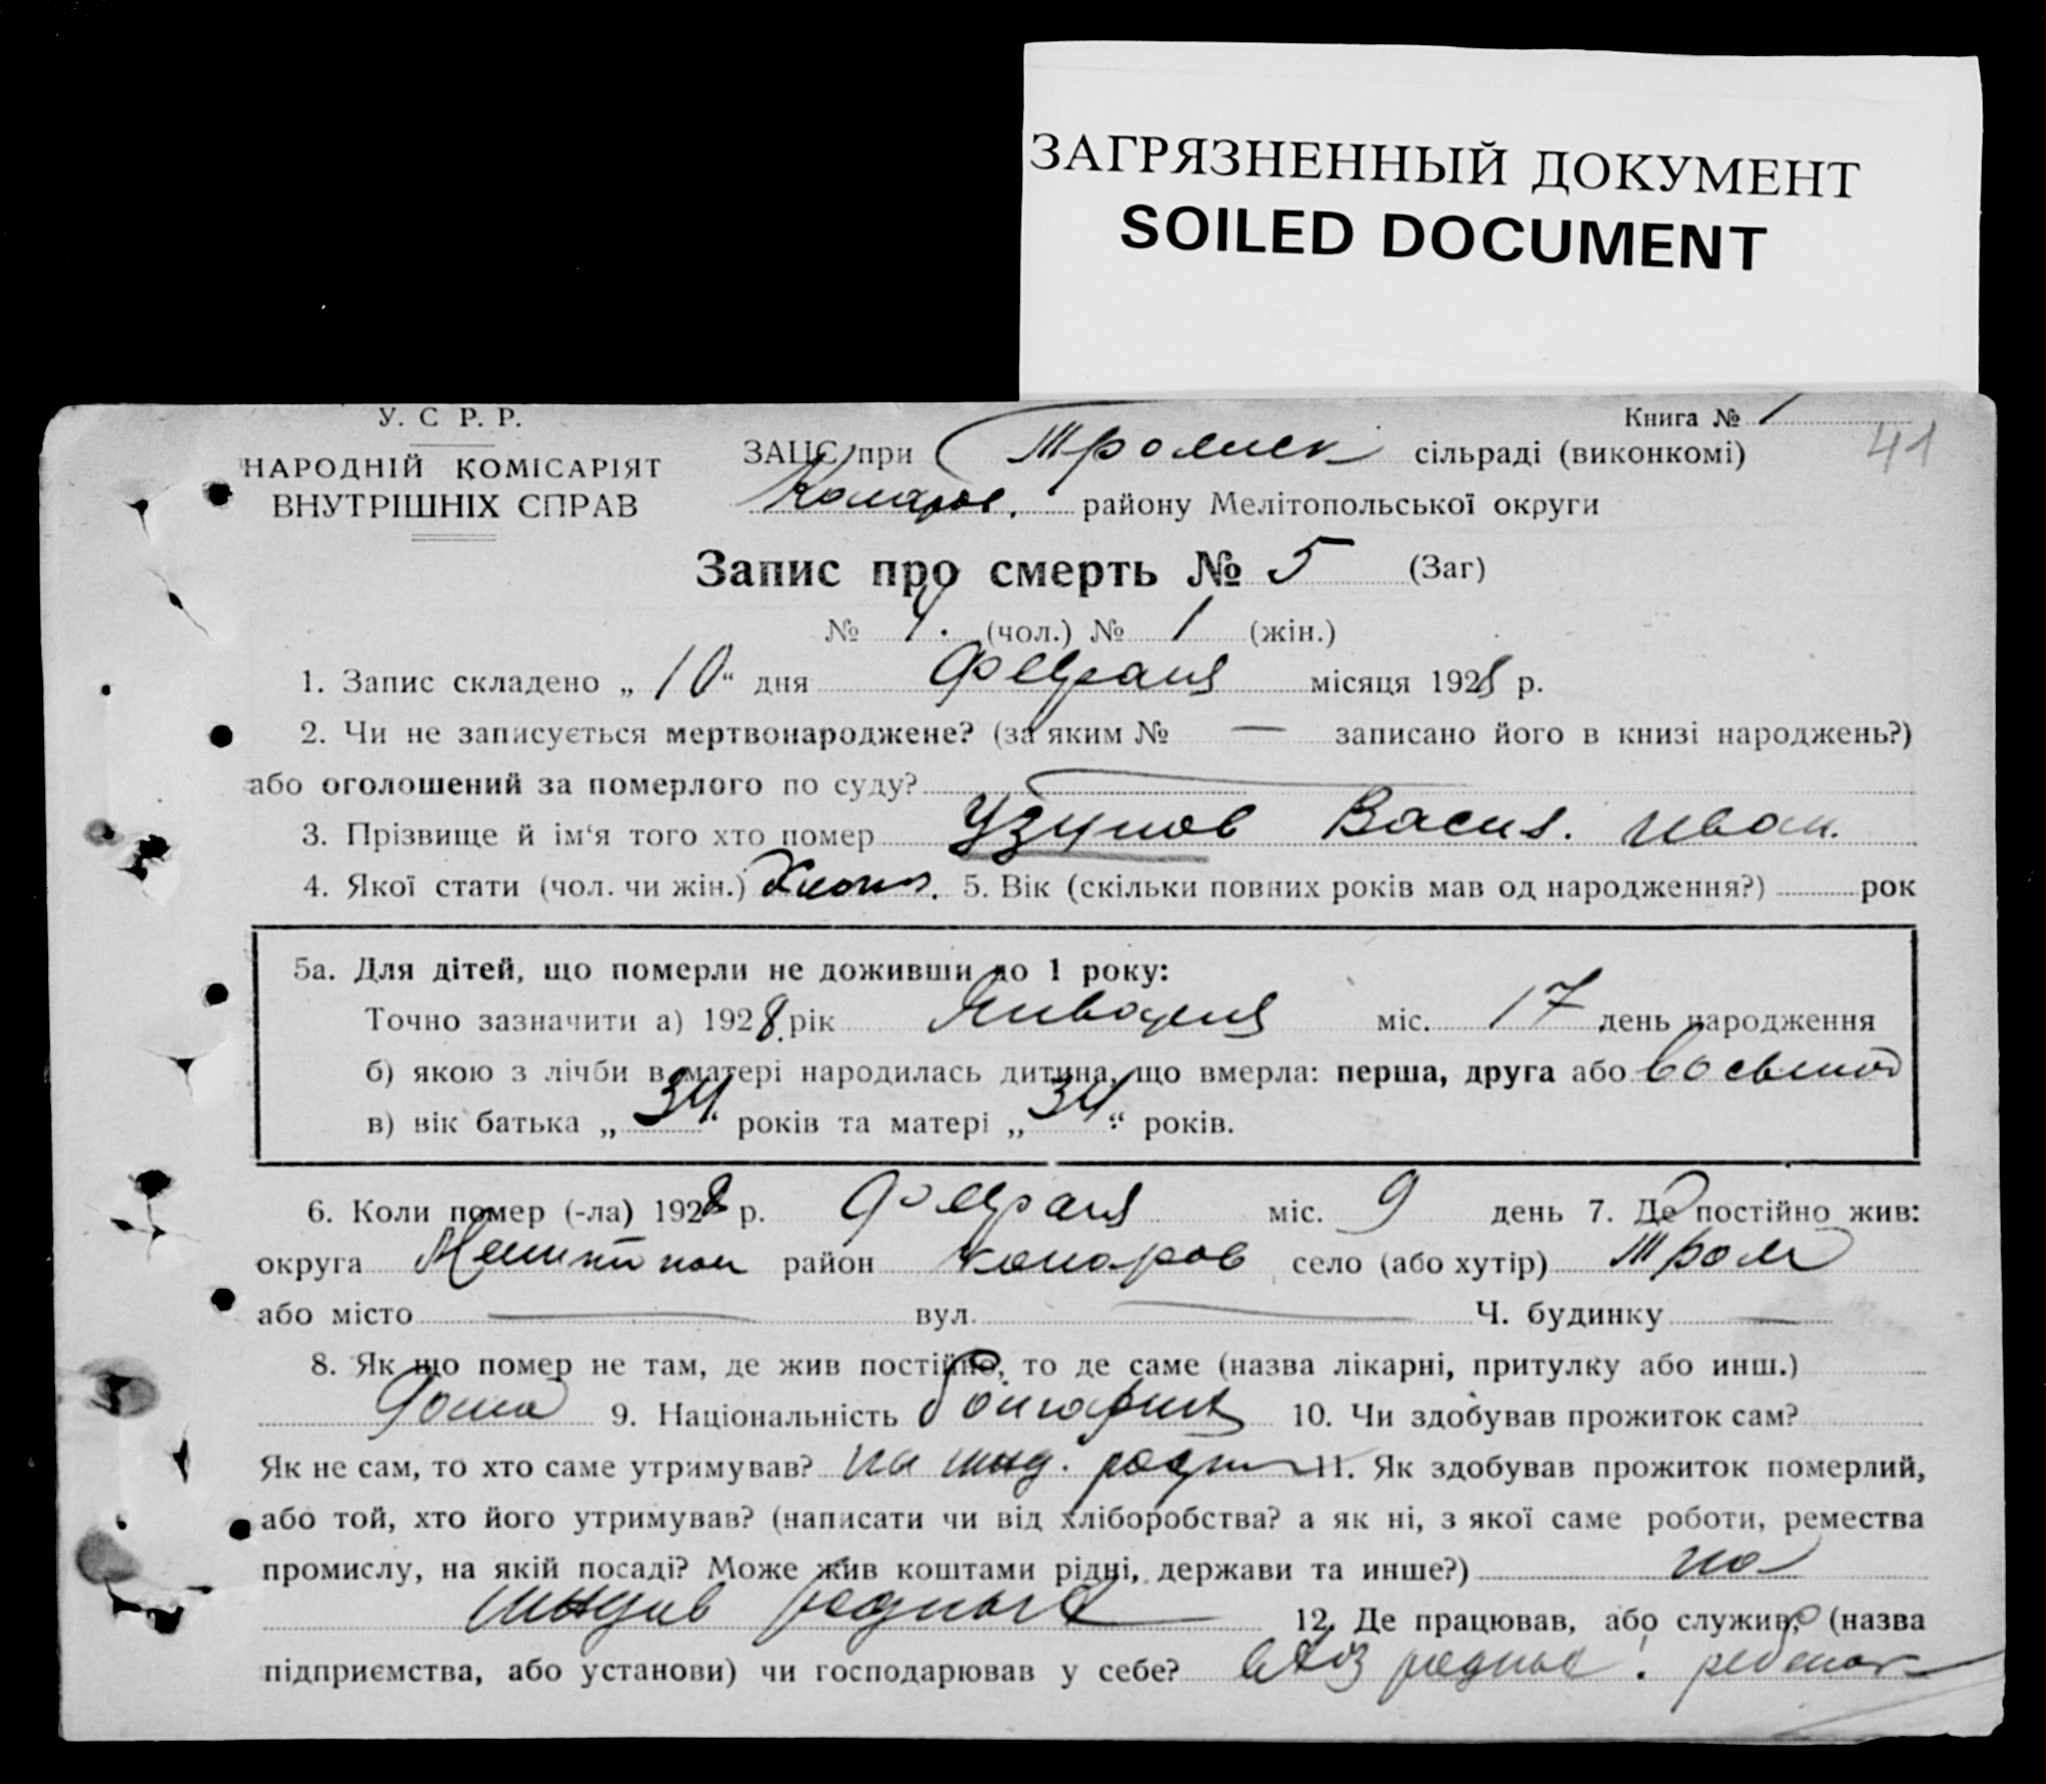 ЗАГРЯЗНЕННЫЙ ДОКУМЕНТ
SOILED DOCUMENT
У. С Р. Р.
НАРОДНІЙ КОМІСАРІЯТ
ВНУТРІШНІХ СПРАВ
Книга № 1
41
ЗАЦС при Трояиск сільраді (виконкомі)
Комаров. району Мелітопольської округи
Запис про смерть № 5 (Заг)
№ 4. (чол.) № 1 (жін.)
1. Запис складено „ 10 “ дня Февраля місяця 1928 р.
2. Чи не записується мертвонароджене? (за яким № — записано його в книзі народжень?)
або оголошений за померлого по суду?
3. Прізвище й ім‘я того хто помер Узунов Васил. Иван.
4. Якої стати (чол. чи жін.) 5. Вік (скільки повних років мав од народження?) рок
5а. Для дітей, що померли не доживши до 1 року:
Точно зазначити а) 1928. рік Января міс. 17 день народження
б) якою з лічби в матері народилась дитина, що вмерла: перша, друга або восьмой
в) вік батька „ 34 “ років та матері „ 34 “ років.
6. Коли помер (-ла) 1928 р. Февраля міс. 9 день 7. Де постійно жив:
округа Мелитопол район Комаров село (або хутір) Троян
або місто — вул. — Ч. будинку —
8. Як що помер не там, де жив постійно, то де саме (назва лікарні, притулку або инш.)
Дома 9. Національність болгарин 10. Чи здобував прожиток сам?
Як не сам, то хто саме утримував? на ижд. родит 11. Як здобував прожиток померлий,
або той, хто його утримував? (написати чи від хліборобства? а як ні, з якої саме роботи, ремества
промислу, на якій посаді? Може жив коштами рідні, держави та инше?) на
иждив родных 12. Де працював, або служив, (назва
підприємства, або установи) чи господарював у себе? в хоз родных ребенок